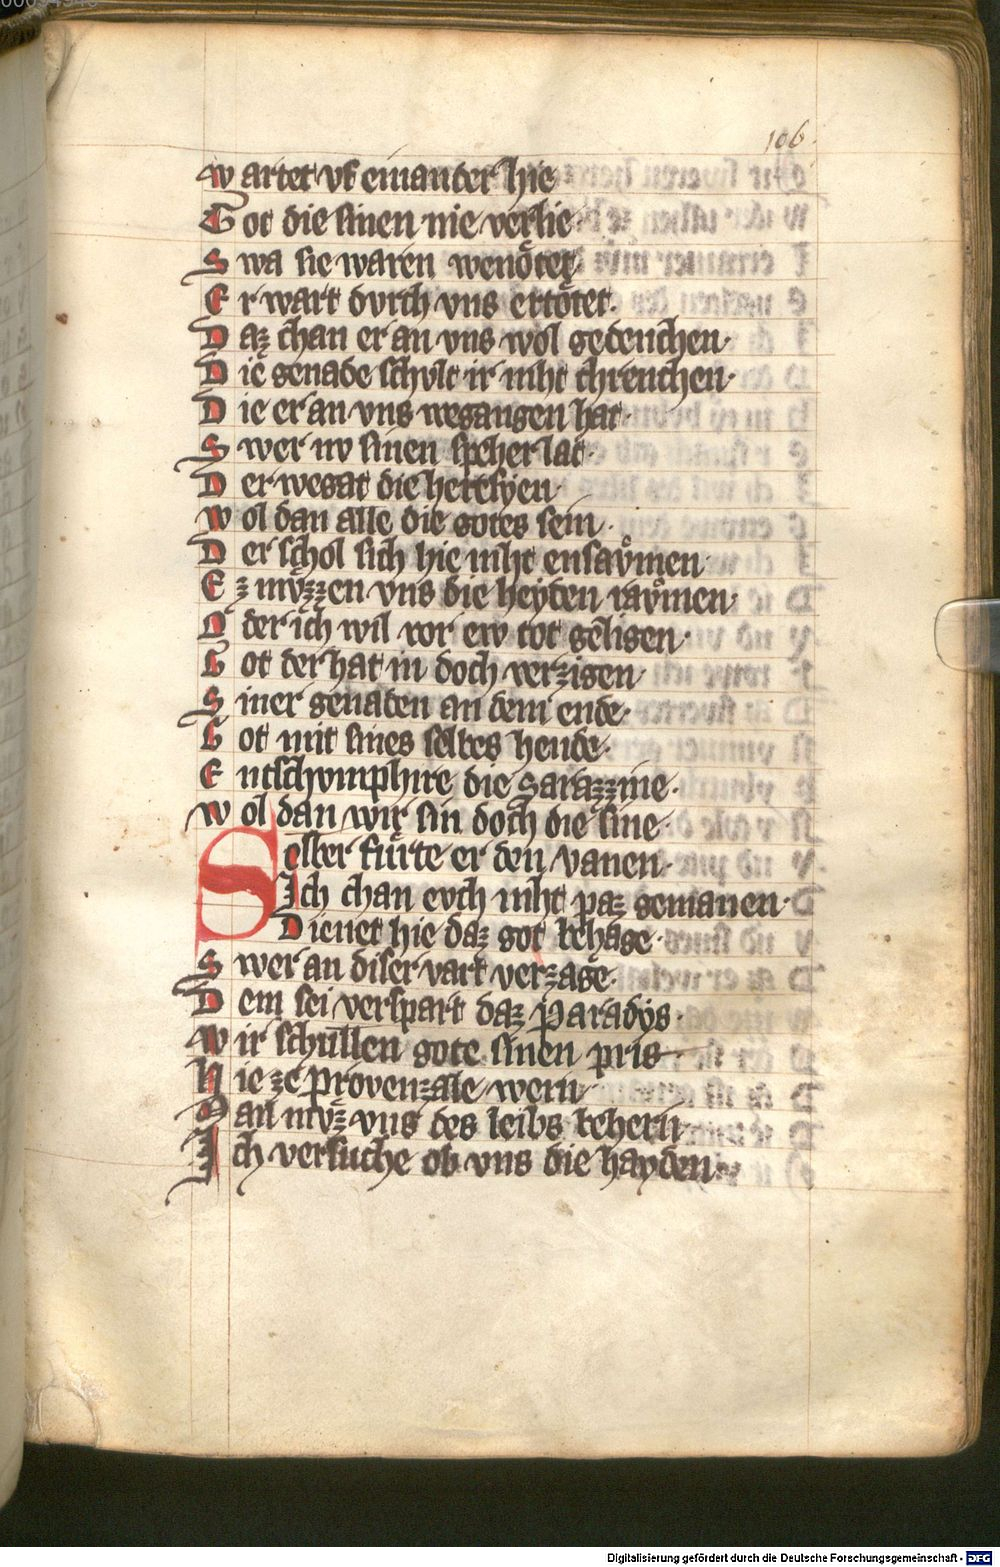 106.
W artet vf einander hie
G ot die sinen nie verlie
S wa sie waren wenoͤtet
E r wart dvrch vns ertoͤtet·
D az chan er an vns wol gedenchen·
D ie genade schvlt ir niht chrenchen·
D ie er an vns wegangen hat·
S wer nv sinen spcher lat·
D er wegat die hertsyen·
W ol dan alle die gotes sein·
D er schol sich hie niht ensavͦmen·
E z mvͤzzen vns die heyden ravͦmen·
O der ich wil vor ew tot geligen·
G ot der hat in doch verzigen·
S iner genaden an dem ende·
G ot mit sines selbes hende·
E ntschvmphire die sarazzine·
W ol dan wir sin doch die sine·
Selber fuͤrte er den vanen·
Ich chan evch niht paz gemanen·
D ienet hie daz got behage·
S wer an diser vart verzage·
D em sei verspart daz paradys·
W ir schullen gote sinen pris
H ie ze provenzale wern
M an mvͤz vns des leibs behern
I ch versuche ob vns die hayden·
Digitalisierung gefördert durch die Deutsche Forschungsgemeinschaft - DFG